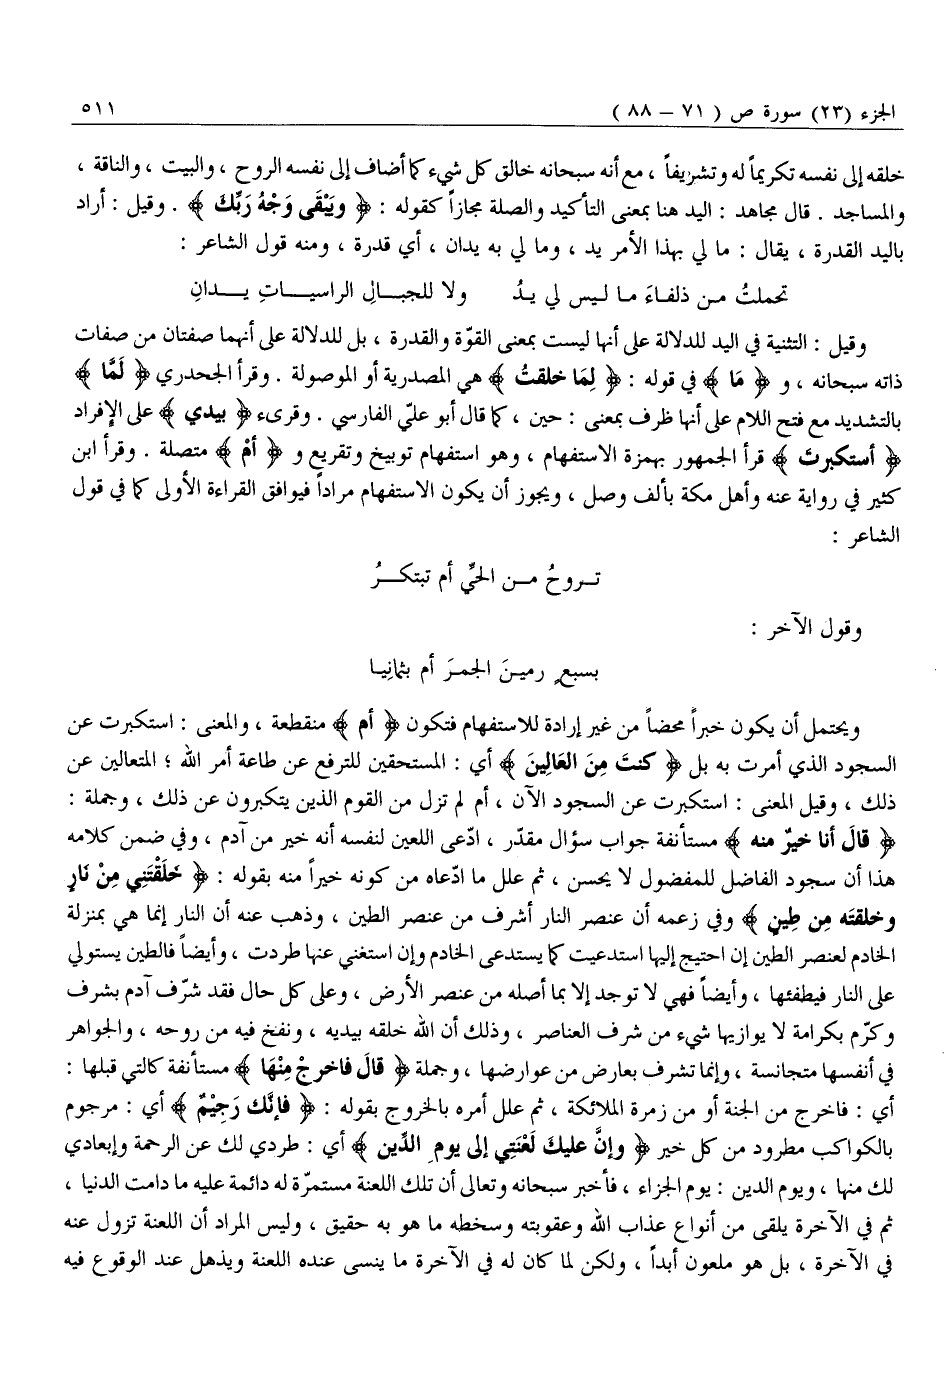 الجزء (٢٣) سورة ص ( ٧١ – ٨٨ ) ٥١١
خلقه إلى نفسه تكريماً له وتشريفاً ، مع أنه سبحانه خالق كل شيء كما أضاف إلى نفسه الروح ، والبيت ، والناقة ،
والمساجد . قال مجاهد : اليد هنا بمعنى التأكيد والصلة مجازاً كقوله : ﴿ ويَبْقَى وَجْهُ رَبِّكَ ﴾ . وقيل : أراد
باليد القدرة ، يقال : ما لي بهذا الأمر يد ، وما لي به يدان ، أي قدرة ، ومنه قول الشاعر :
تحملتُ مـن ذلفاءَ مـا ليـس لي يـدُ ولا للجبـالِ الراسيـاتِ يـدانِ
وقيل : التثنية في اليد للدلالة على أنها ليست بمعنى القوّة والقدرة ، بل للدلالة على أنهما صفتان من صفات
ذاته سبحانه ، و ﴿ مَا ﴾ في قوله : ﴿ لِمَا خلقتُ ﴾ هي المصدرية أو الموصولة . وقرأ الجحدري ﴿ لَمَّا ﴾
بالتشديد مع فتح اللام على أنها ظرف بمعنى : حين ، كما قال أبو عليّ الفارسي . وقرىء ﴿ بيدي ﴾ على الإفراد
﴿ أستكبرتَ ﴾ قرأ الجمهور بهمزة الاستفهام ، وهو استفهام توبيخ وتقريع و ﴿ أمْ ﴾ متصلة . وقرأ ابن
كثير في رواية عنه وأهل مكة بألف وصل ، ويجوز أن يكون الاستفهام مراداً فيوافق القراءة الأولى كما في قول
الشاعر :
تـروحُ مـن الحيِّ أم تبتكـرُ
وقول الآخر :
بسبعٍ رميـنَ الجمرَ أم بثمانِيا
ويحتمل أن يكون خبراً محضاً من غير إرادة للاستفهام فتكون ﴿ أم ﴾ منقطعة ، والمعنى : استكبرت عن
السجود الذي أمرت به بل ﴿ كنتَ مِنَ العَالِينَ ﴾ أي : المستحقين للترفع عن طاعة أمر الله ؛ المتعالين عن
ذلك ، وقيل المعنى : استكبرت عن السجود الآن ، أم لم تزل من القوم الذين يتكبرون عن ذلك ، وجملة :
﴿ قالَ أنا خيرٌ منه ﴾ مستأنفة جواب سؤال مقدّر ، ادّعى اللعين لنفسه أنه خير من آدم ، وفي ضمن كلامه
هذا أن سجود الفاضل للمفضول لا يحسن ، ثم علل ما ادّعاه من كونه خيراً منه بقوله : ﴿ خَلَقْتَنِي مِنْ نَارٍ
وخلقتَه مِن طِينٍ ﴾ وفي زعمه أن عنصر النار أشرف من عنصر الطين ، وذهب عنه أن النار إنما هي بمنزلة
الخادم لعنصر الطين إن احتيج إليها استدعيت كما يستدعى الخادم وإن استغني عنها طردت ، وأيضاً فالطين يستولي
على النار فيطفئها ، وأيضاً فهي لا توجد إلا بما أصله من عنصر الأرض ، وعلى كل حال فقد شرّف آدم بشرف
وكرّم بكرامة لا يوازيها شيء من شرف العناصر ، وذلك أن الله خلقه بيديه ، ونفخ فيه من روحه ، والجواهر
في أنفسها متجانسة ، وإنما تشرف بعارض من عوارضها ، وجملة ﴿ قالَ فاخرجْ مِنْهَا ﴾ مستأنفة كالتي قبلها :
أي : فاخرج من الجنة أو من زمرة الملائكة ، ثم علل أمره بالخروج بقوله : ﴿ فإنَّكَ رَجِيْمٌ ﴾ أي : مرجوم
بالكواكب مطرود من كل خير ﴿ وإنَّ عليكَ لَعْنَتِي إلى يومِ الدِّينِ ﴾ أي : طردي لك عن الرحمة وإبعادي
لك منها ، ويوم الدين : يوم الجزاء ، فأخبر سبحانه وتعالى أن تلك اللعنة مستمرّة له دائمة عليه ما دامت الدنيا ،
ثم في الآخرة يلقى من أنواع عذاب الله وعقوبته وسخطه ما هو به حقيق ، وليس المراد أن اللعنة تزول عنه
في الآخرة ، بل هو ملعون أبداً ، ولكن لما كان له في الآخرة ما ينسى عنده اللعنة ويذهل عند الوقوع فيه